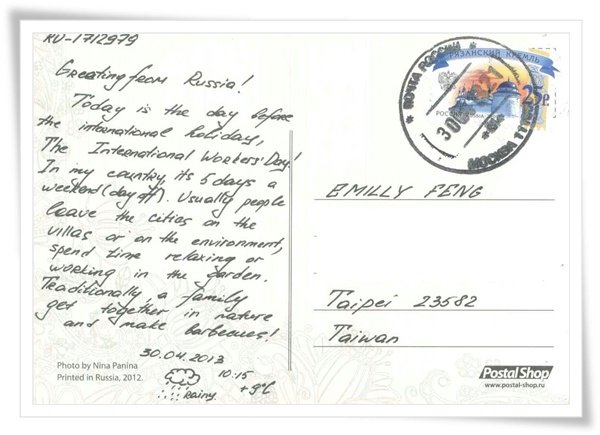 RU-1712979
Greating from Russia!
Today is the day before
the international holiday,
The International Workers' Day!
In my country, its 5 days a
weekend (day off). Usually people
leave the cities on the
villas or on the environment,
spend time relaxing or
working in the garden.
Traditionally, a family
get together in nature
and make barbecues!
30.04.2013
10:15
rainy
+9°C
Photo by Nina Panina
Printed in Russia, 2012.
ПОЧТА РОССИИ
МОСКВА
РЯЗАНСКИЙ КРЕМЛЬ
25р
EMILLY FENG
Taipei 23582
Taiwan
PostalShop
www.postal-shop.ru